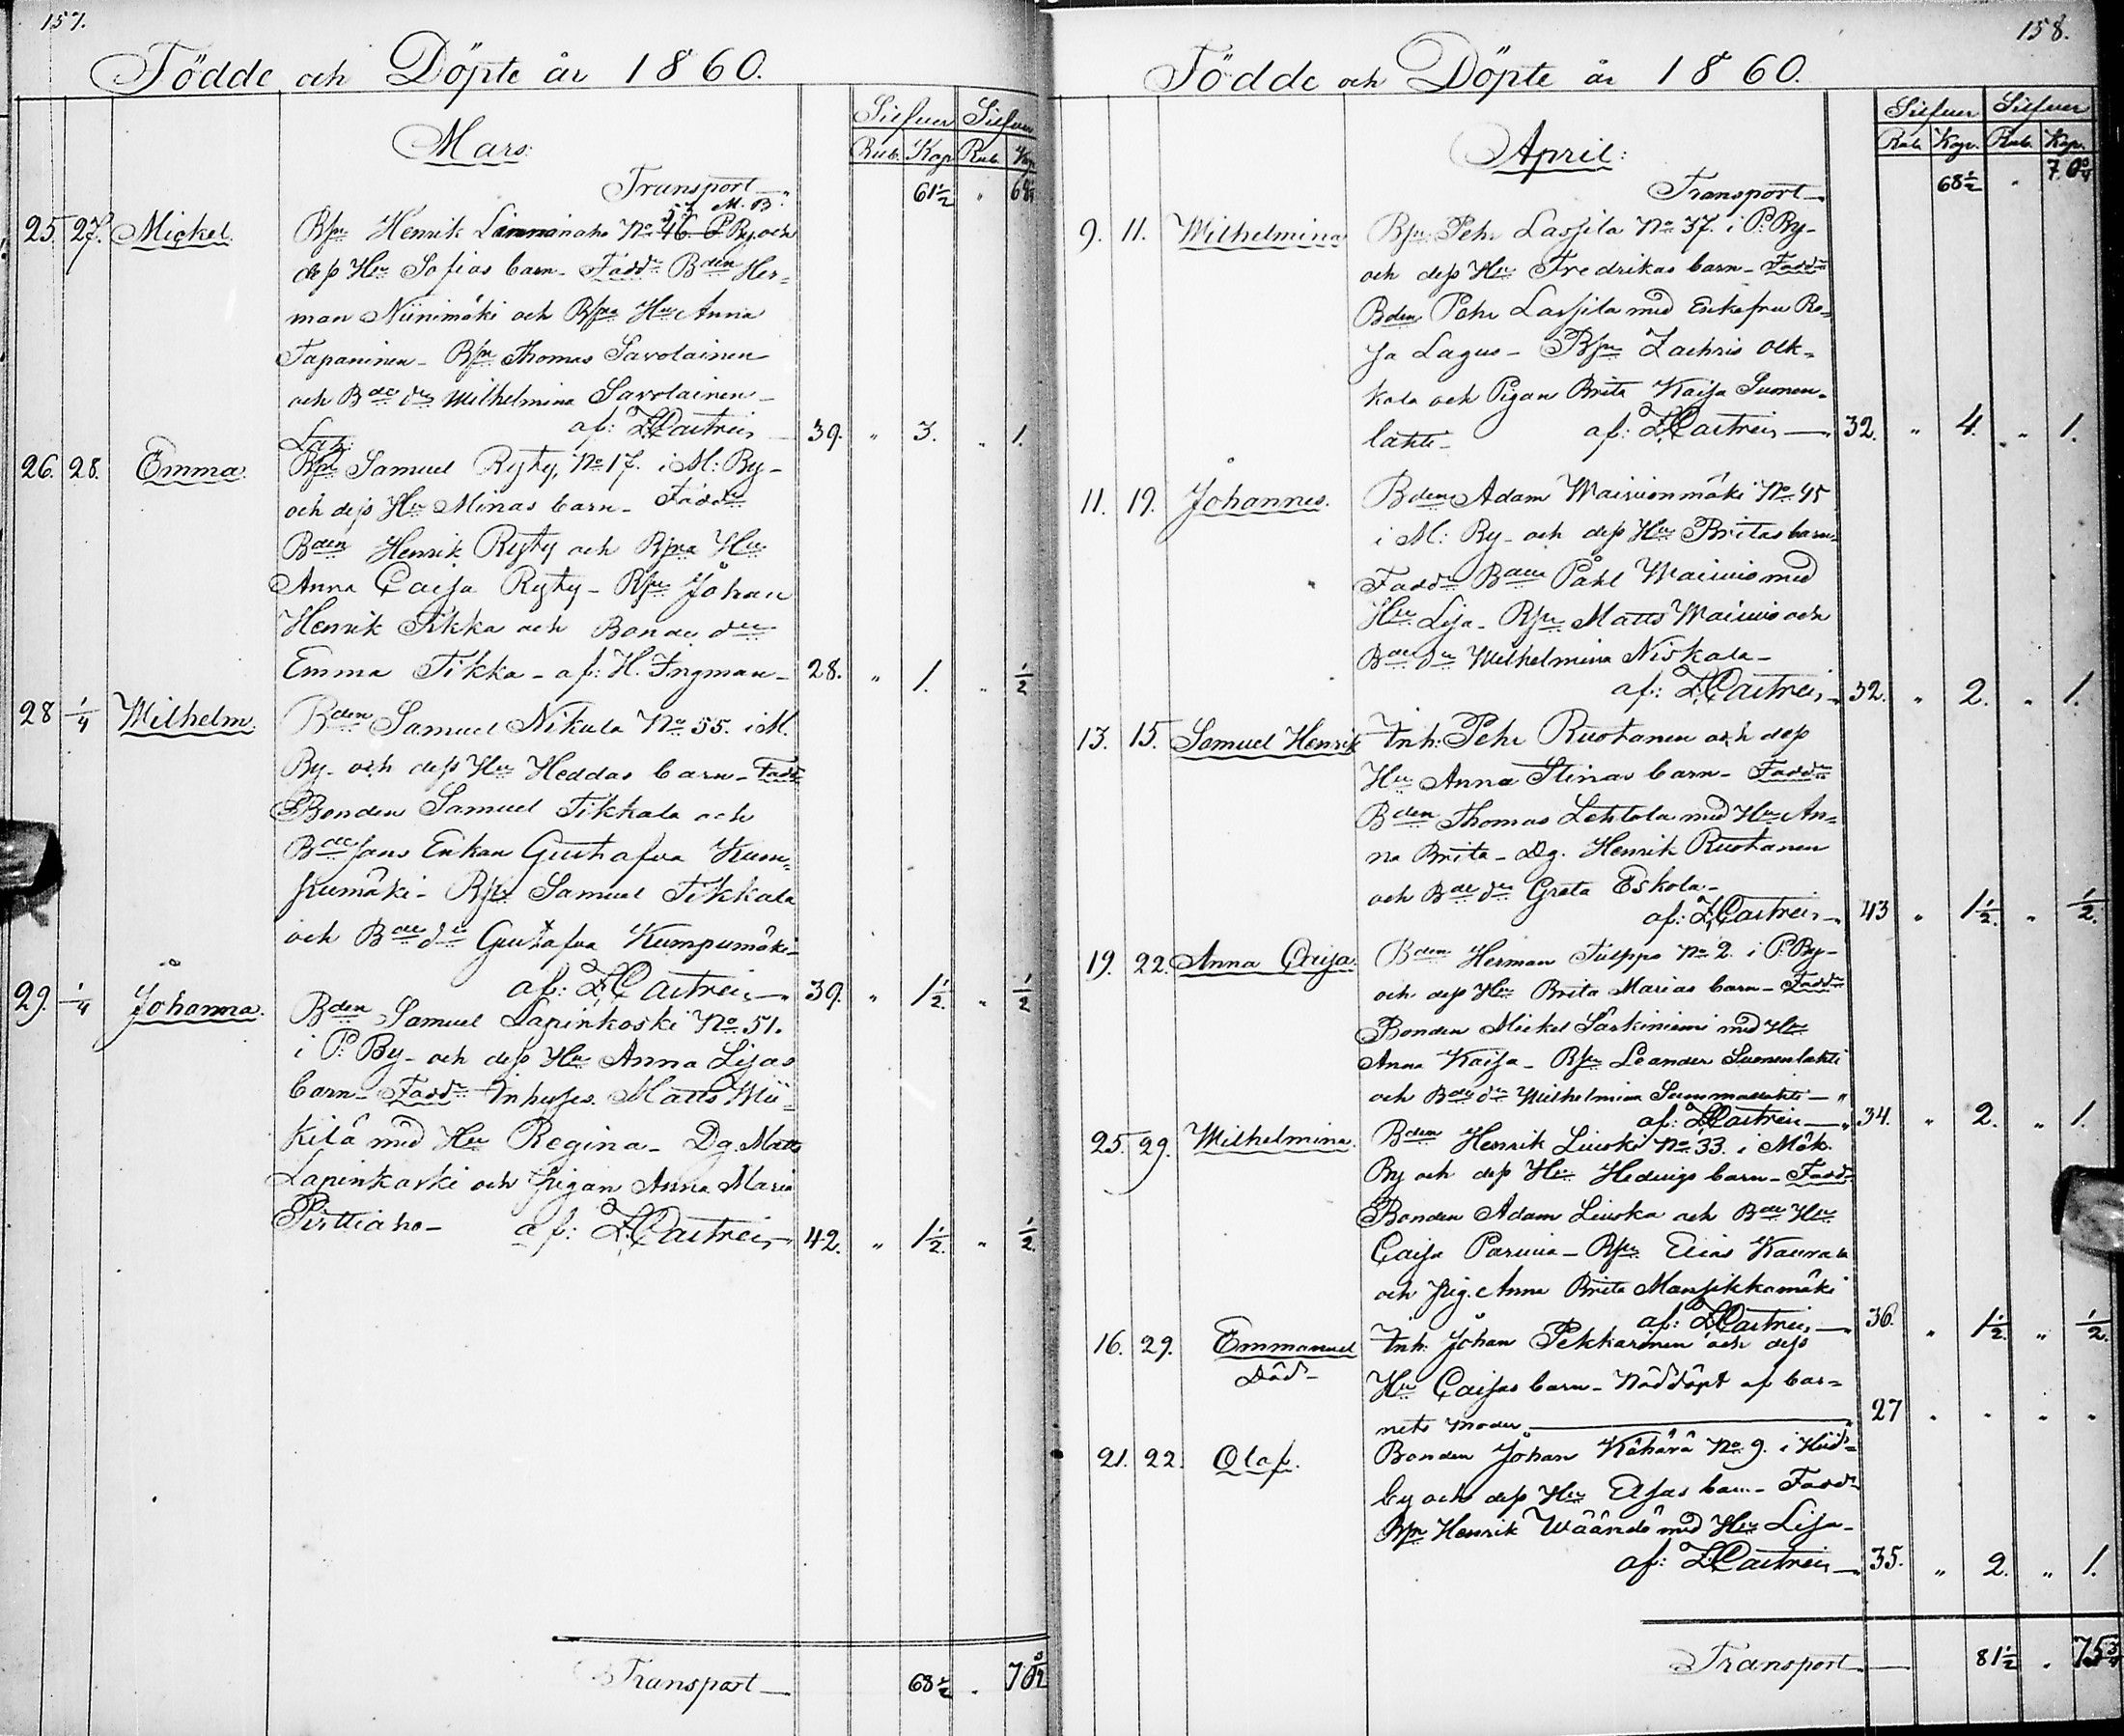 157.
Födde och Döpte år 1860.
Silfver Silfver
Rub. Kop Rub. Kop
Mars:
Transport
61 1/2 "
53 M. B
25. 27. Mickel. Bspn Henrik Linnanaho No 46. P By och
dess Hu Sofias barn - Faddr Bden Her-
man Niinimäki och Bspns Hu Anna
Tapaninen - Bspn Thomas Savolainen
och Bde dr Wilhelmina Savolainen -
af: Z. Castrén 39. " 3. " 1.
26. 28. Emma. Bspn Samuel Ryty, No 17. i M: By -
och dess Hu Minas barn - Faddr
Bden Henrik Ryty och Bspns Hu
Anna Caisa Ryty - Bspn Johan
Henrik Tikka och Bonde dr
Emma Tikka - af: H. Ingman - 28. " 1. " 1/2
28 1/4 Wilhelm. Bden Samuel Nikula No 55. i M.
By - och dess Hu Heddas barn - Faddr
Bonden Samuel Tikkala och
Bdesans Enkan Gustafva Kum-
pumäki - Bspn Samuel Tikkala
och Bde dr Gustafva Kumpumäki -
af: Z. Castrén 39. " 1 1/2. " 1/2
29. 1/4 Johanna. Bden Samuel Lapinkoski No 51.
i P: By - och dess Hu Anna Lisas
barn - Faddr Inhyses. Matts Wii-
kilä med Hu Regina - Dg. Matts
Lapinkoski och pigan Anna Maria
Pirttiaho - af: Z. Castrén 42. " 1 1/2. " 1/2.
Transport 68 1/2 "
158.
Födde och Döpte år 1860.
Silfver Silfver
Rub. Kop. Rub. Kop.
April:
Transport 68 1/2 "
9. 11. Wilhelmina Bspn Pehr Lassila No 37. i P: By -
och dess Hu Fredrikas barn - Faddr
Bden Pehr Lassila med Enkefru Ro-
sa Lagus - Bspn Zachris Olk-
kola och Pigan Brita Kaisa Suonen-
lahti - af: Z. Castrén 32. " 4. " 1.
11. 19. Johannes. Bden Adam Waivionmäki No 45
i M: By - och dess Hu Britas barn -
Faddr Bden Påhl Waivio med
Hu Lisa - Bspn Matts Waivio och
Bde dr Wilhelmina Niskala -
af: Z. Castrén 32. " 2. " 1.
13. 15. Samuel Henrik Inh: Pehr Ruotanen och dess
Hu Anna Stinas barn - Faddr
Bden Thomas Lehtola med Hu An-
na Brita - Dg. Henrik Ruotanen
och Bde dr Greta Eskola -
af: Z. Castrén 43 " 1 1/2. " 1/2.
19. 22. Anna Caisa. Bden Herman Tulppo No 2. i P: By -
och dess Hu Brita Marias barn - Faddr
Bonden Mickel Sarkiniemi med Hu
Anna Kaisa - Bspn Leander Suonenlahti
och Bde dr Wilhelmina
af: Z. Castrén 34. " 2. " 1.
25. 29. Wilhelmina. Bden Henrik No 33. i Mök.
By och dess Hu Hedvigs barn - Faddr
Bonden Adam och Bde Hu
Caisa Parvia - Bspn Elias Kaurala
och pig. Anna Brita Mansikkamäki
af: Z. Castrén 36. " 1 1/2. " 1/2.
16. 29. Emmanuel Inh: Johan Pekkarinen och dess
Död - Hu Caisas barn - Nöddöpt af bar-
nets moder 27 " " " "
21. 22. Olof. Bonden Johan Kähärä No 9. i
by och dess Hu Elsas barn - Faddr
Bspn Henrik Wäänä med Hu Lisa -
af: Z. Castrén 35. " 2. " 1.
Transport 81 1/2 " 75 3/4